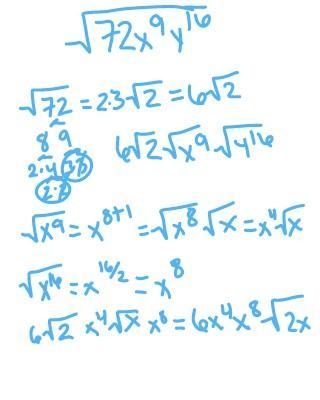 √72x⁹y¹⁶
√72 = 2·3√2 = 6√2
8 9
6√2 √x⁹ √y¹⁶
2·4 3·3
2·2
√x⁹ = x⁸⁺¹ = √x⁸ √x = x⁴√x
√x¹⁶ = x¹⁶/² = x⁸
6√2 x⁴√x x⁸ = 6x⁴x⁸√2x